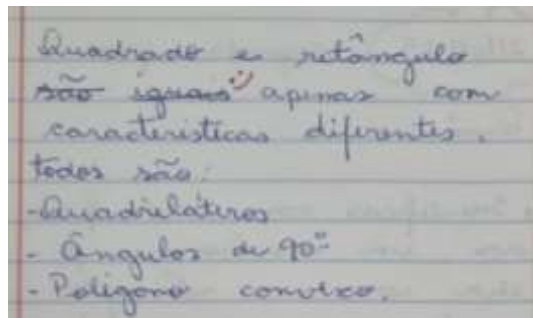 Quadrado e retângulo
são iguais apenas com
características diferentes.
todos são:
- Quadriláteros
- Ângulos de 90º
- Polígono convexo.